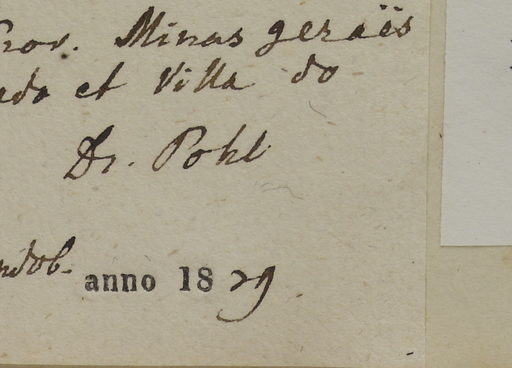 Prov. Minas geraës
et Villa do
Dr. Pohl
anno 1829